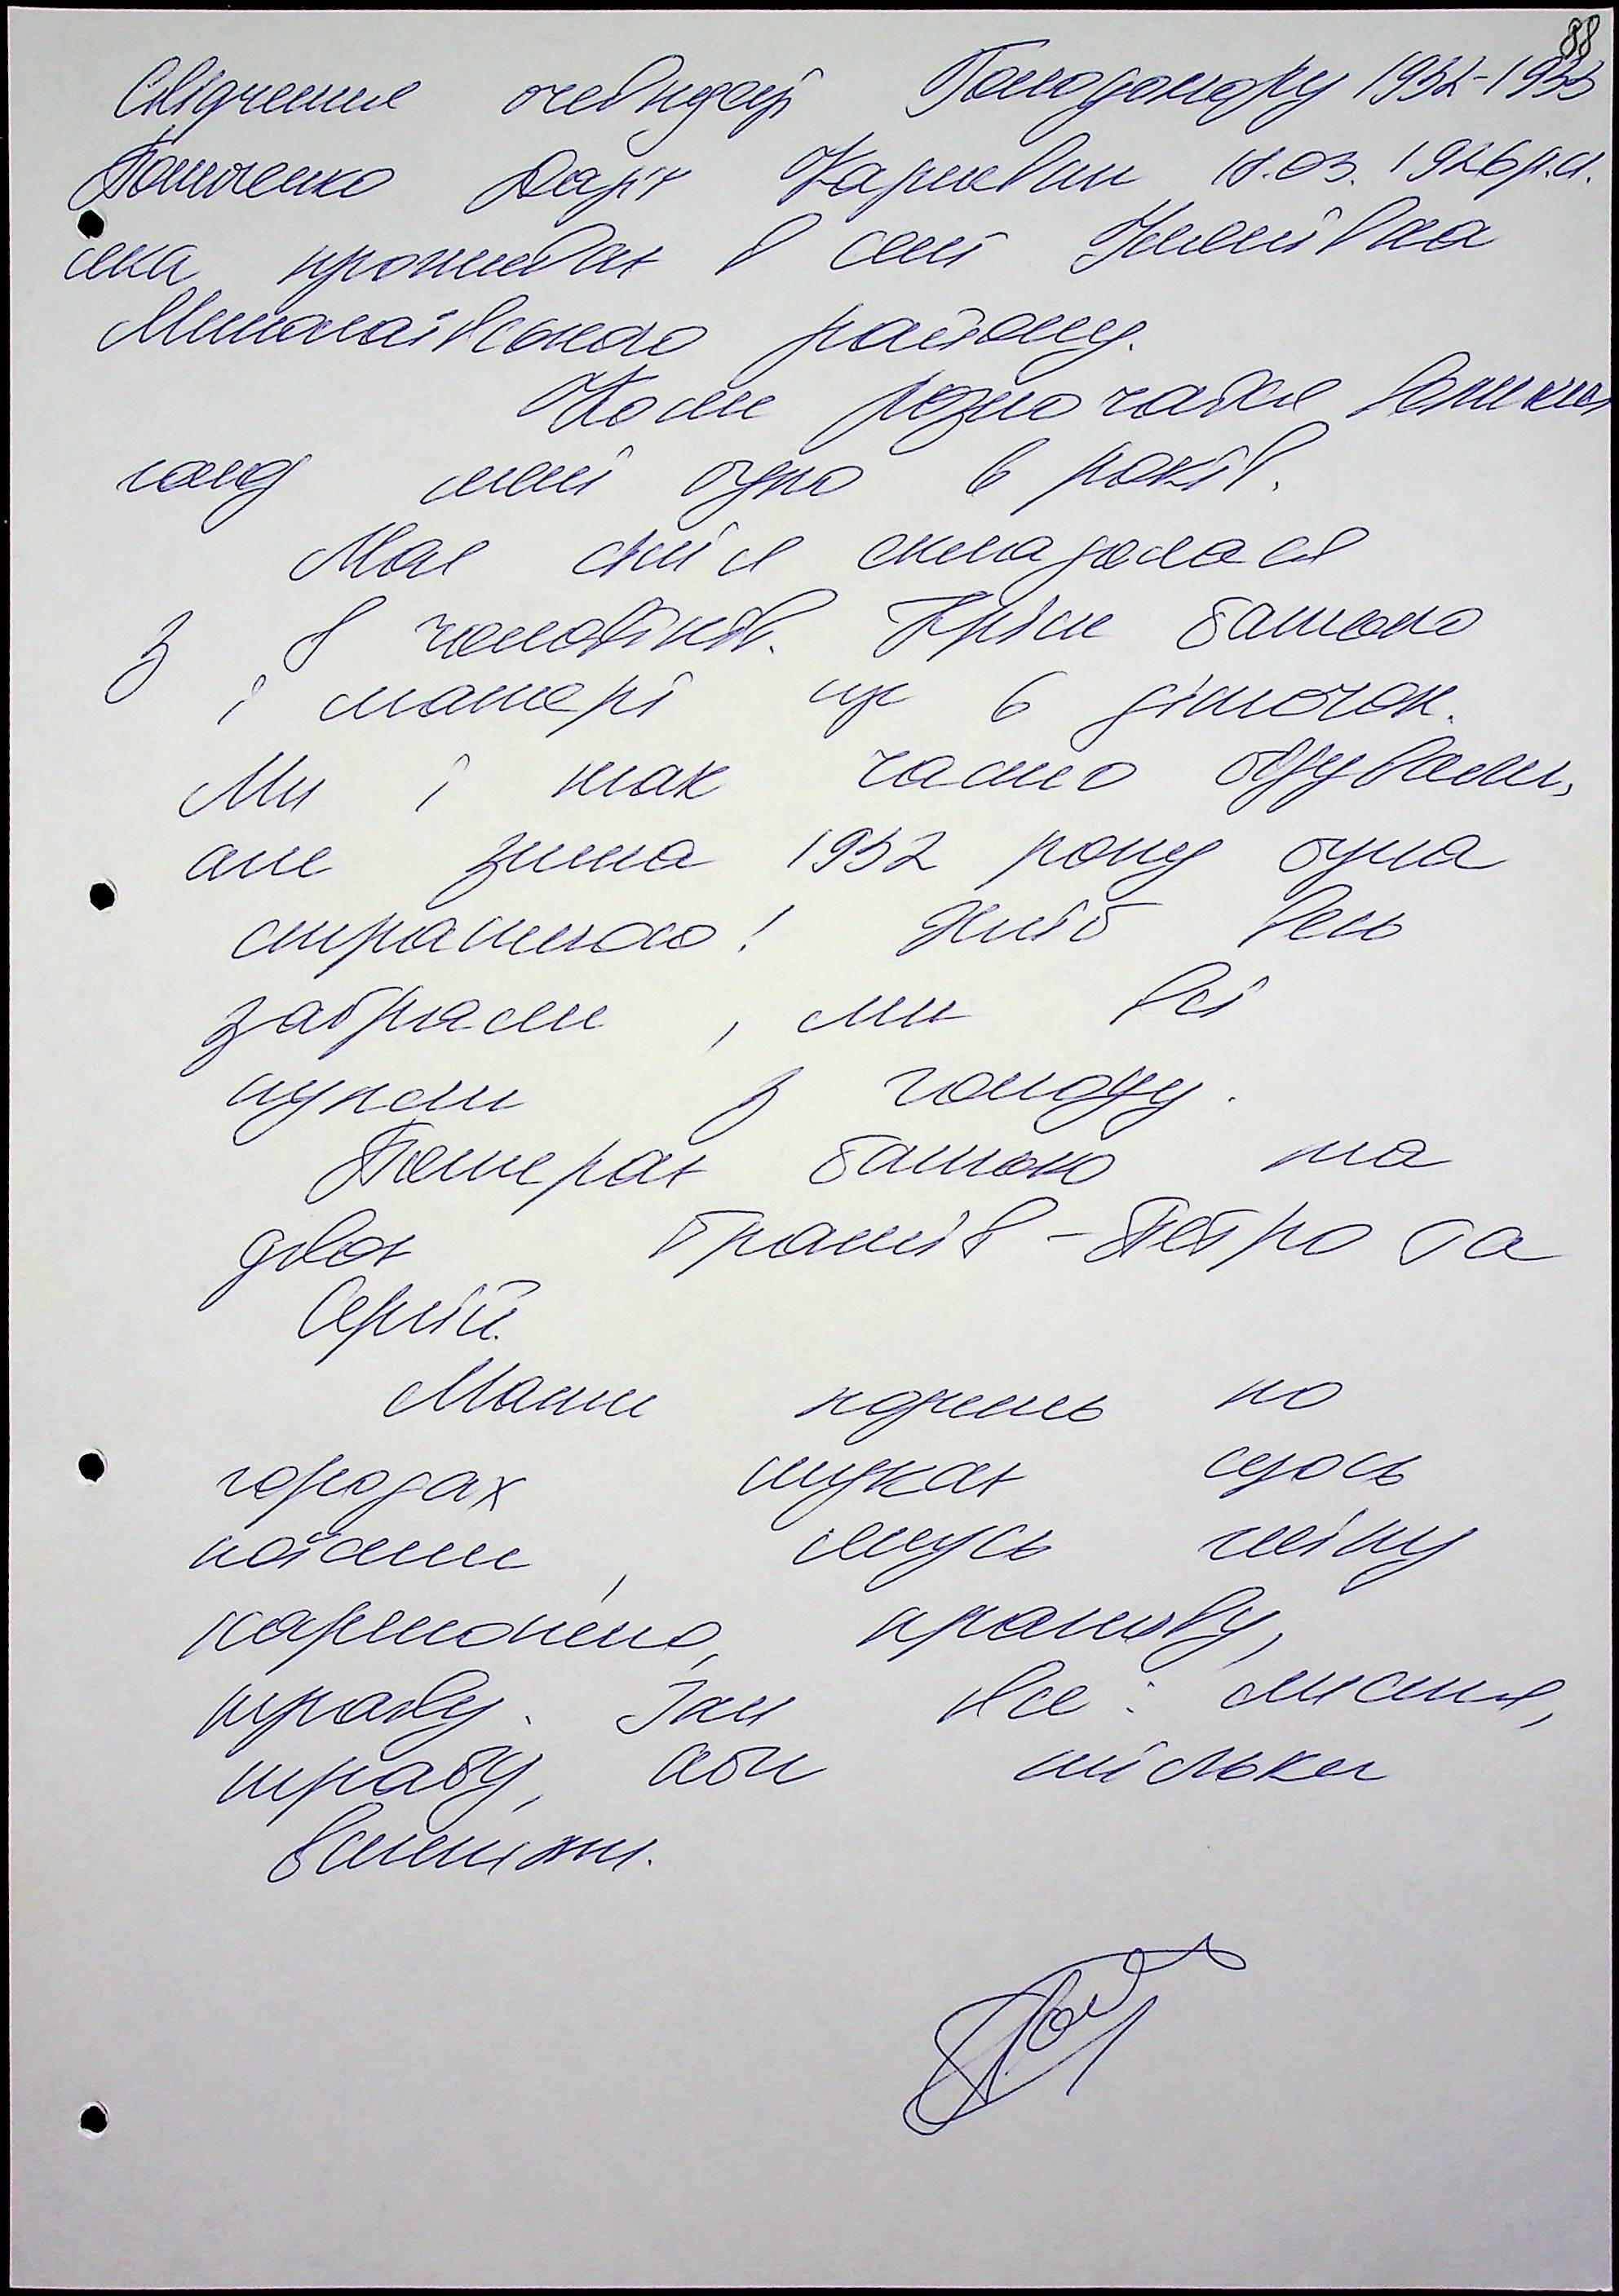 88
Свідчення очевидця Голодомору 1932-1933
Дар'ї 18.03. 1926 р.н.
яка проживає в селі
Миколаївського району.
Коли розпочався великий
голод мені було 6 років.
Моя сім'я складалася
з 8 чоловіків. Крім батька
і матері ще 6 діточок.
Ми і так часто бідували,
але зима 1932 року була
страшною! Хліб весь
забрали, ми всі
пухли з голоду.
Помирає батько та
двоє братів - Петро та
Сергій.
Мати ходить по
городах шукає щось
поїсти, якусь гнілу
картоплю, кропиву,
траву. Їли все: листя,
траву, аби тільки
вижити.